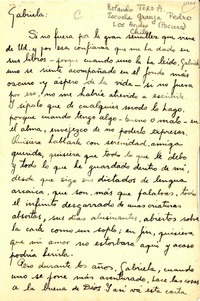 Rolando Toro A.
Escuela Granja Pedro
Los Andes
Chile
Gabriela:
Si no fuera por la gran
de Ud. y por esa confianza que me ha dado en
sus libros - porque cuando uno la ha leído, Gabriela,
uno se siente acompañado en el fondo más
oscuro y áspero de la vida - si no fuera
por eso, no me habría atrevido a escribirle.
Y sépalo que de cualquier modo lo hago,
porque cuando tengo algo - bueno o malo - en
el alma, envejezco de no poderlo expresar.
Quisiera hablarle con serenidad, amiga
querida, quisiera que todo lo que le debo
y todo lo que he guardado dentro de mí,
desde que sigo sus dictados de lengua
arcaica, que son, más que palabras, todo
el infinito desgarrado de unas criaturas
absortas, sus dias alucinantes, abiertos sobre
la carta como un soplo; en fin, quisiera
que mi amor no estorbara aquí y acaso
podría herirla.
Pero durante los años, Gabriela, cuando
uno se fora más acentuado, lace las cosas
a la buena de Dios. Y así va esta carta